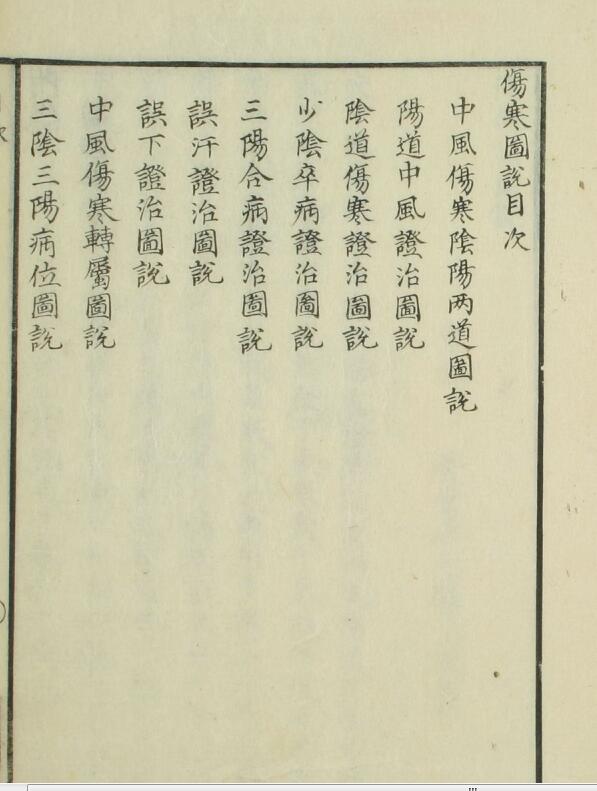 傷寒圖說目次
中風傷寒陰陽两道圖說
陽道中風證治圖說
陰道傷寒證治圖說
少陰卒病證治圖說
三陽合病證治圖說
誤汗證治圖說
誤下證治圖說
中風傷寒轉屬圖說
三陰三陽病位圖說